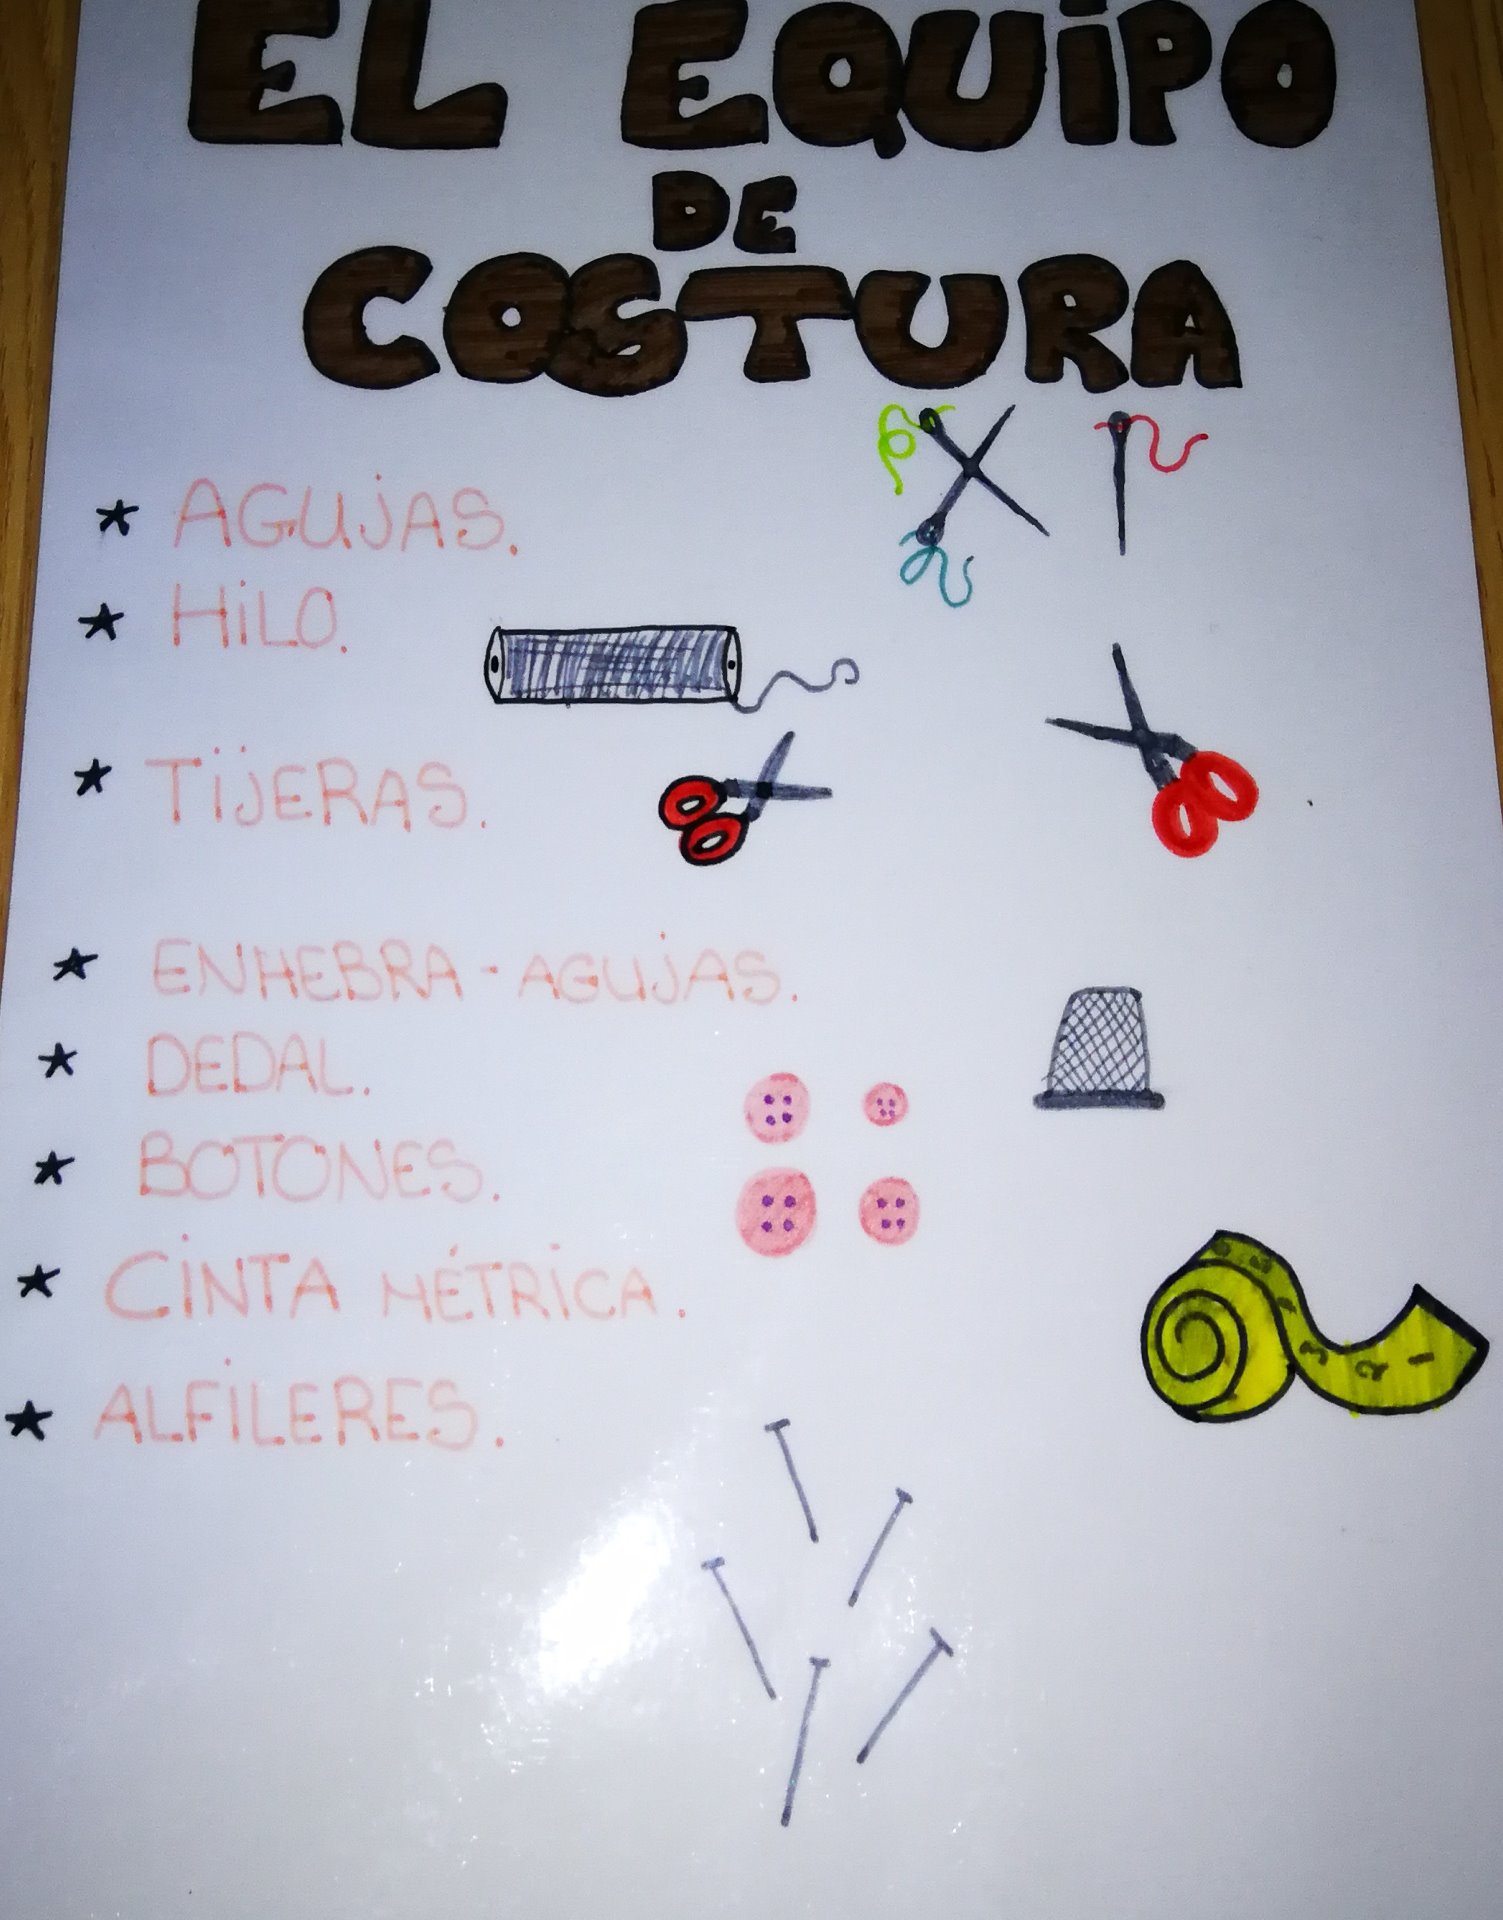 EL EQUIPO
DE
COSTURA
* AGUJAS.
* HILO.
* TIJERAS.
* ENHEBRA-AGUJAS.
* DEDAL.
* BOTONES.
* CINTA MÉTRICA.
* ALFILERES.